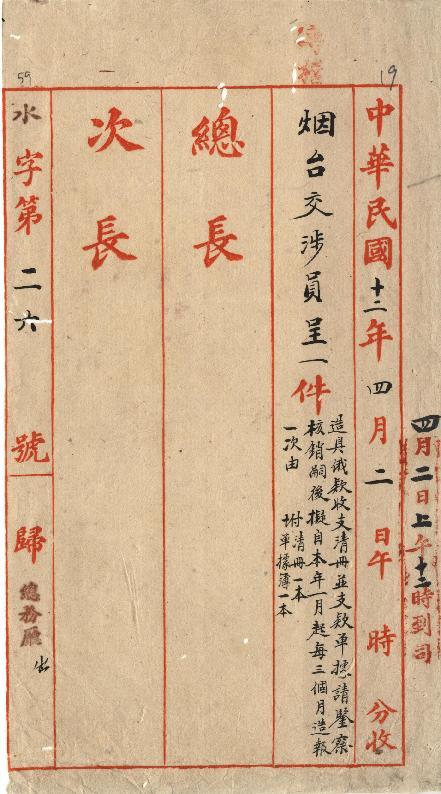 19
59
四月二日上午十二時到司
中華民國十二年四月二日午 時 分收
烟台交涉員呈一件
造具俄款收支清冊並支款單據請鑒察
核銷嗣後擬自本年一月起每三個月造報
一次由
附清冊一本
單據簿一本
總長
次長
水字第二六號
歸總務廳